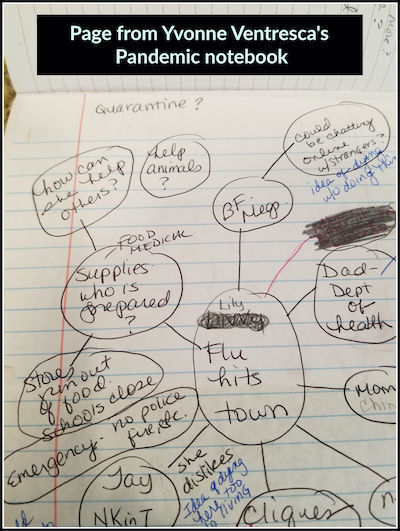 Page from Yvonne Ventresca's
Pandemic notebook
Quarantine?
how can
she help
others?
help
animals
?
could
be chatting
online
w/strangers?
idea of dying
w/o doing this
BF
FOOD
MEDICAL
Supplies
who is
prepared
?
Lily
Flu
hits
town
Dad-
Dept
of
health
Stores
run out
of food.
Schools close
Emergency- no police
fire, etc.
Mom
Jay
NKinT
she
dislikes
Idea of dying
here too
living
cliques